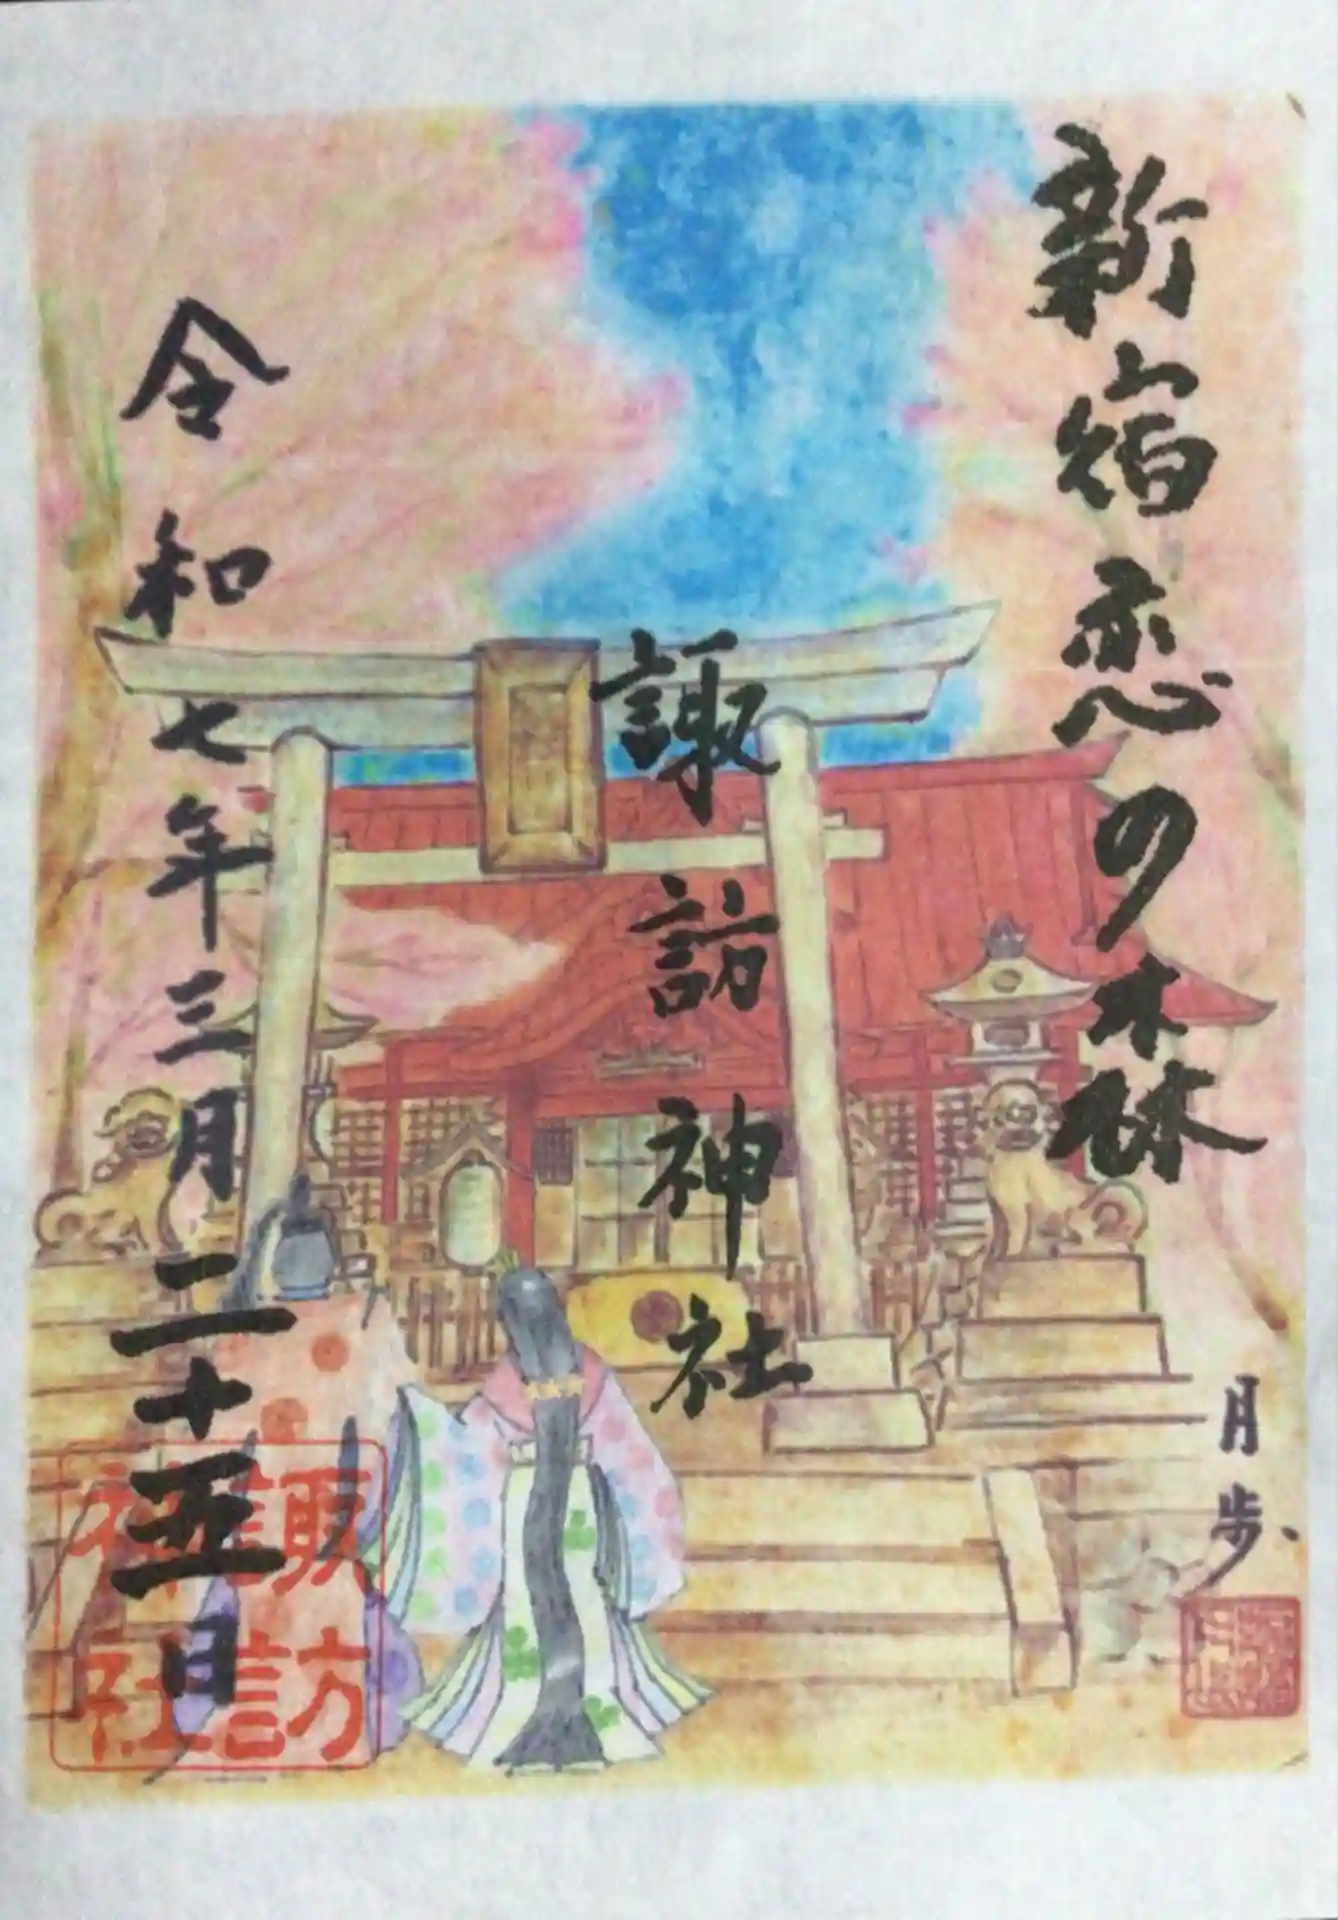 新宿恋の森
月歩
諏訪神社
令和七年三月二十五日
諏訪
神社